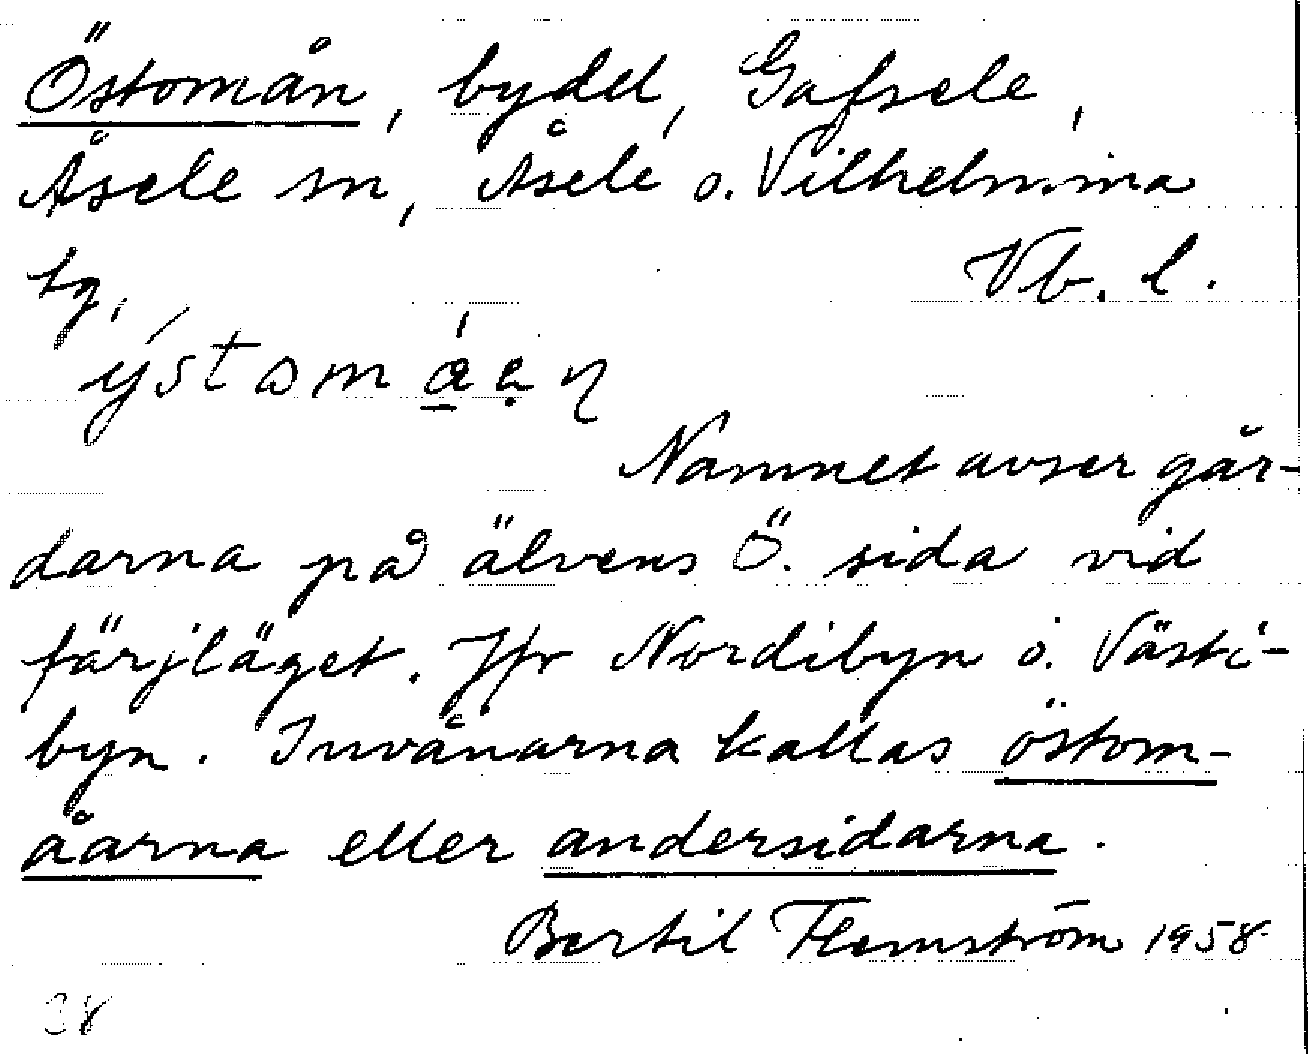 Östomån, bydel, Gafsele,
Åsele sn, Åsele o. Vilhelmina
tg, Vb. l.
Namnet avser går-
darna på älvens Ö. sida vid
färjläget. Jfr Nordibyn o. Västi-
byn. Invånarna kallas östom-
åarna eller andersidarna.
Bertil Flemström 1958
38